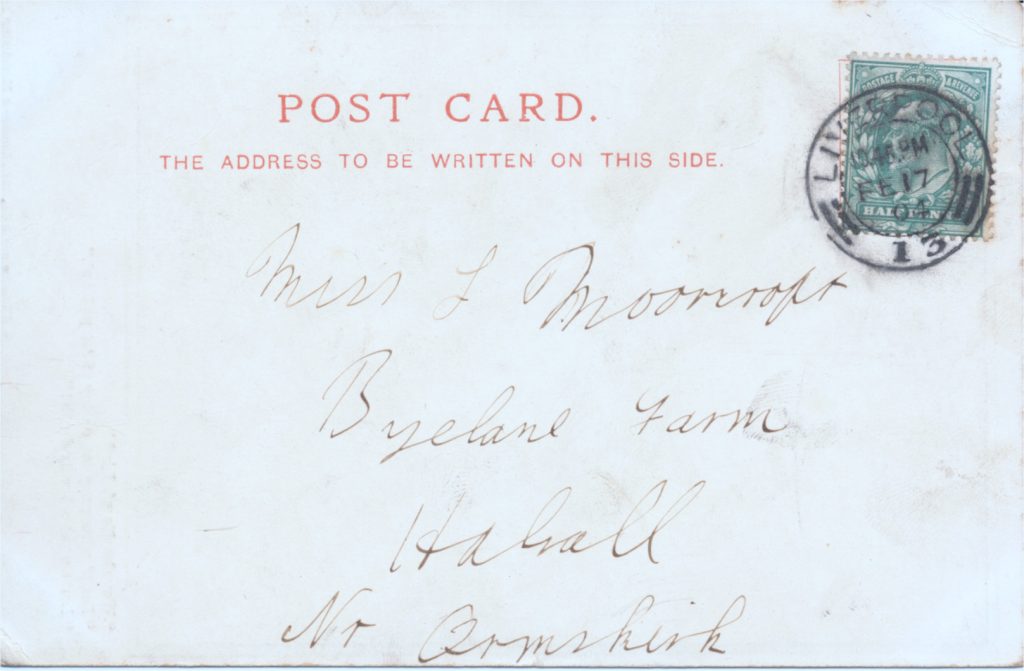 POST CARD.
THE ADDRESS TO BE WRITTEN ON THIS SIDE.
POSTAGE & REVENUE
HALFPENNY
LIVERPOOL
PM
FE 17
04
13
Miss L Moorcroft
Byelane Farm
Halsall
Nr Ormskirk